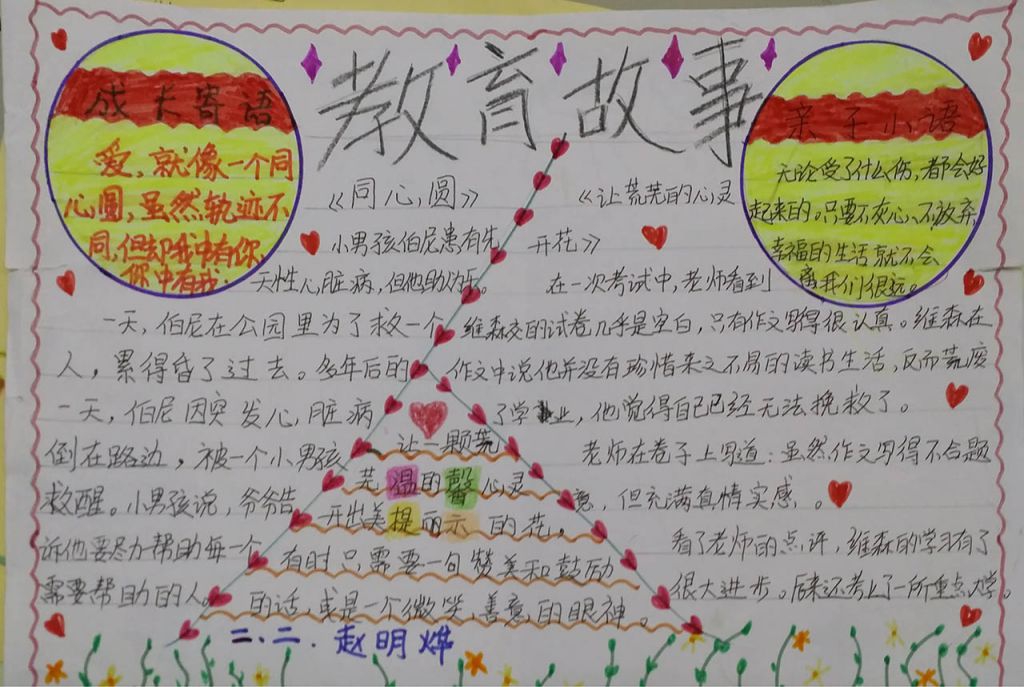 教育故事
成长寄语
爱,就像一个同
心圆,虽然轨迹不
同,但却我中有你,
你中有我.
《同心圆》
小男孩伯尼患有先
天性心脏病,但他助人为乐。
一天,伯尼在公园里为了救一个
人,累得昏了过去。多年后的
一天,伯尼因突发心脏病
倒在路边,被一个小男孩
救醒。小男孩说,爷爷告
诉他要尽力帮助每一个
需要帮助的人。
《让荒芜的心灵
开花》
在一次考试中,老师看到
维森交的试卷几乎是空白,只有作文写得很认真。维森在
作文中说他并没有珍惜来之不易的读书生活,反而荒废
了学业,他觉得自己已经无法挽救了。
老师在卷子上写道:虽然作文写得不合题
意,但充满真情实感。
看了老师的点评,维森的学习有了
很大进步。后来还考上了一所重点大学。
亲子小语
无论受了什么伤,都会好
起来的。只要不灰心、不放弃,
幸福的生活就不会
离我们很远。
让一颗荒
芜温的馨心灵
开出美提丽示的花。
有时只需要一句赞美和鼓励
的话,或是一个微笑、善意的眼神。
二.二.赵明烨